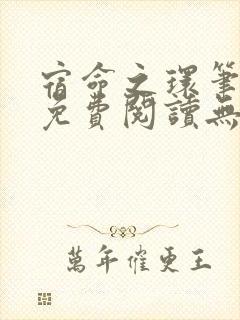 宿命之環筆
免費閱讀無
萬年催更王